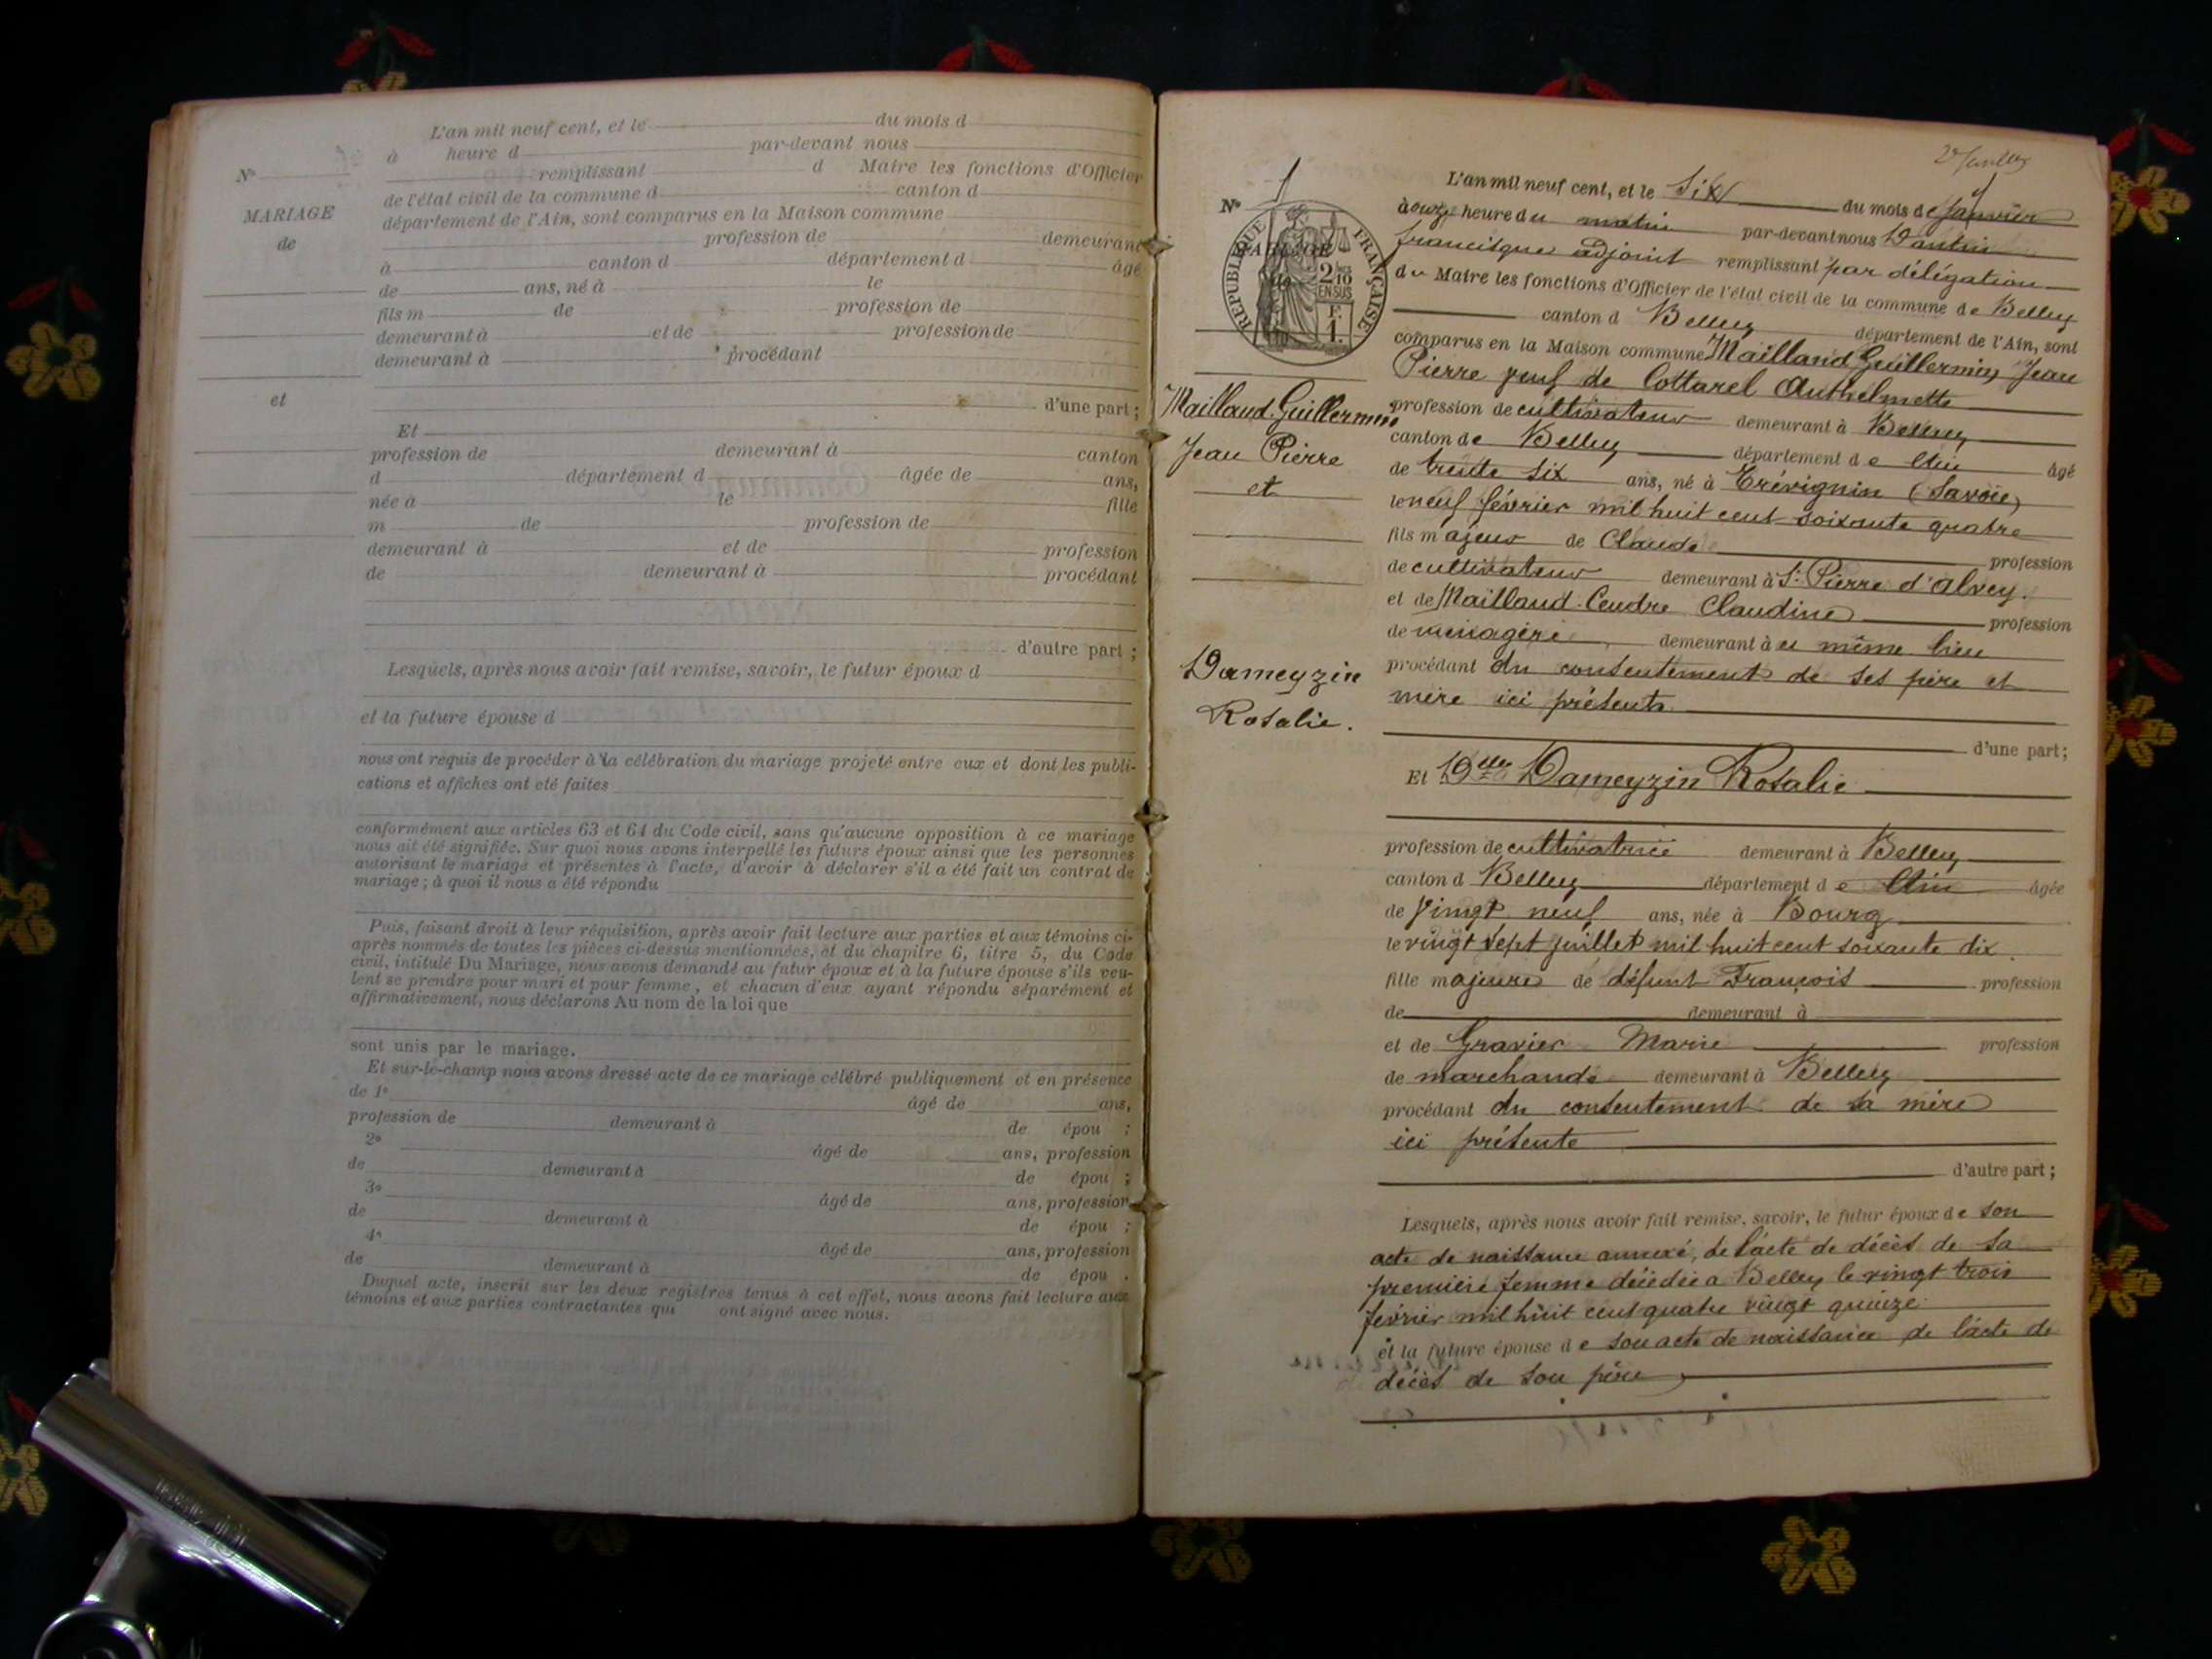 L'an mil neuf cent, et le du mois d
à heure d par-devant nous
N° remplissant d Maire les fonctions d'Officier
de l'état civil de la commune d canton d
MARIAGE département de l'Ain, sont comparus en la Maison commune
de profession de demeurant
à canton d département d âgé
de ans, né à le
fils m de profession de
demeurant à et de profession de
demeurant à procédant
et
d'une part ;
Et
profession de demeurant à canton
d département d âgée de ans,
née à le fille
m de profession de
demeurant à et de profession
de demeurant à procédant
d'autre part ;
Lesquels, après nous avoir fait remise, savoir, le futur époux d
et la future épouse d
nous ont requis de procéder à la célébration du mariage projeté entre eux et dont les publi-
cations et affiches ont été faites
conformément aux articles 63 et 64 du Code civil, sans qu'aucune opposition à ce mariage
nous ait été signifiée. Sur quoi nous avons interpellé les futurs époux ainsi que les personnes
autorisant le mariage et présentes à l'acte, d'avoir à déclarer s'il a été fait un contrat de
mariage ; à quoi il nous a été répondu
Puis, faisant droit à leur réquisition, après avoir fait lecture aux parties et aux témoins ci-
après nommés de toutes les pièces ci-dessus mentionnées, et du chapitre 6, titre 5, du Code
civil, intitulé Du Mariage, nous avons demandé au futur époux et à la future épouse s'ils veu-
lent se prendre pour mari et pour femme, et chacun d'eux ayant répondu séparément et
affirmativement, nous déclarons Au nom de la loi que
sont unis par le mariage.
Et sur-le-champ nous avons dressé acte de ce mariage célébré publiquement et en présence
de 1° âgé de ans,
profession de demeurant à de épou ;
2° âgé de ans, profession
de demeurant à de épou ;
3° âgé de ans, profession
de demeurant à de épou ;
4° âgé de ans, profession
de demeurant à de épou .
Duquel acte, inscrit sur les deux registres tenus à cet effet, nous avons fait lecture aux
témoins et aux parties contractantes qui ont signé avec nous.
N° 1
RÉPUBLIQUE FRANÇAISE
2/10
EN SUS
F.
1.
Mailland-Guillermin
Jean Pierre
et
Dameyzin
Rosalie.
L'an mil neuf cent, et le Six du mois de Janvier
à onze heure du matin par-devant nous Dantin
francisque adjoint remplissant par délégation
du Maire les fonctions d'Officier de l'état civil de la commune de Belley
canton d Belley département de l'Ain, sont
comparus en la Maison commune Mailland Guillermin Jean
Pierre veuf de Cottarel Anthelmette
profession de cultivateur demeurant à Belley
canton de Belley département de Ain âgé
de trente six ans, né à Trévignin (Savoie)
le neuf février mil huit cent soixante quatre
fils majeur de Claude profession
de cultivateur demeurant à St Pierre d'alvey.
et de Mailland-Cendre Claudine profession
de ménagère demeurant à u même lieu
procédant du consentement de ses père et
mère ici présents.
d'une part ;
Et Dlle Dameyzin Rosalie
profession de cultivatrice demeurant à Belley
canton d Belley département de Ain âgée
de vingt neuf ans, née à Bourg
le vingt sept juillet mil huit cent soixante dix.
fille majeure de défunt François profession
de demeurant à
et de Gravier Marie profession
de marchande demeurant à Belley
procédant du consentement de sa mère
ici présente
d'autre part ;
Lesquels, après nous avoir fait remise, savoir, le futur époux de son
acte de naissance annexé, de l'acte de décès de sa
première femme décédée à Belley le vingt trois
février mil huit cent quatre vingt quinze
et la future épouse de son acte de naissance de l'acte de
décès de son père